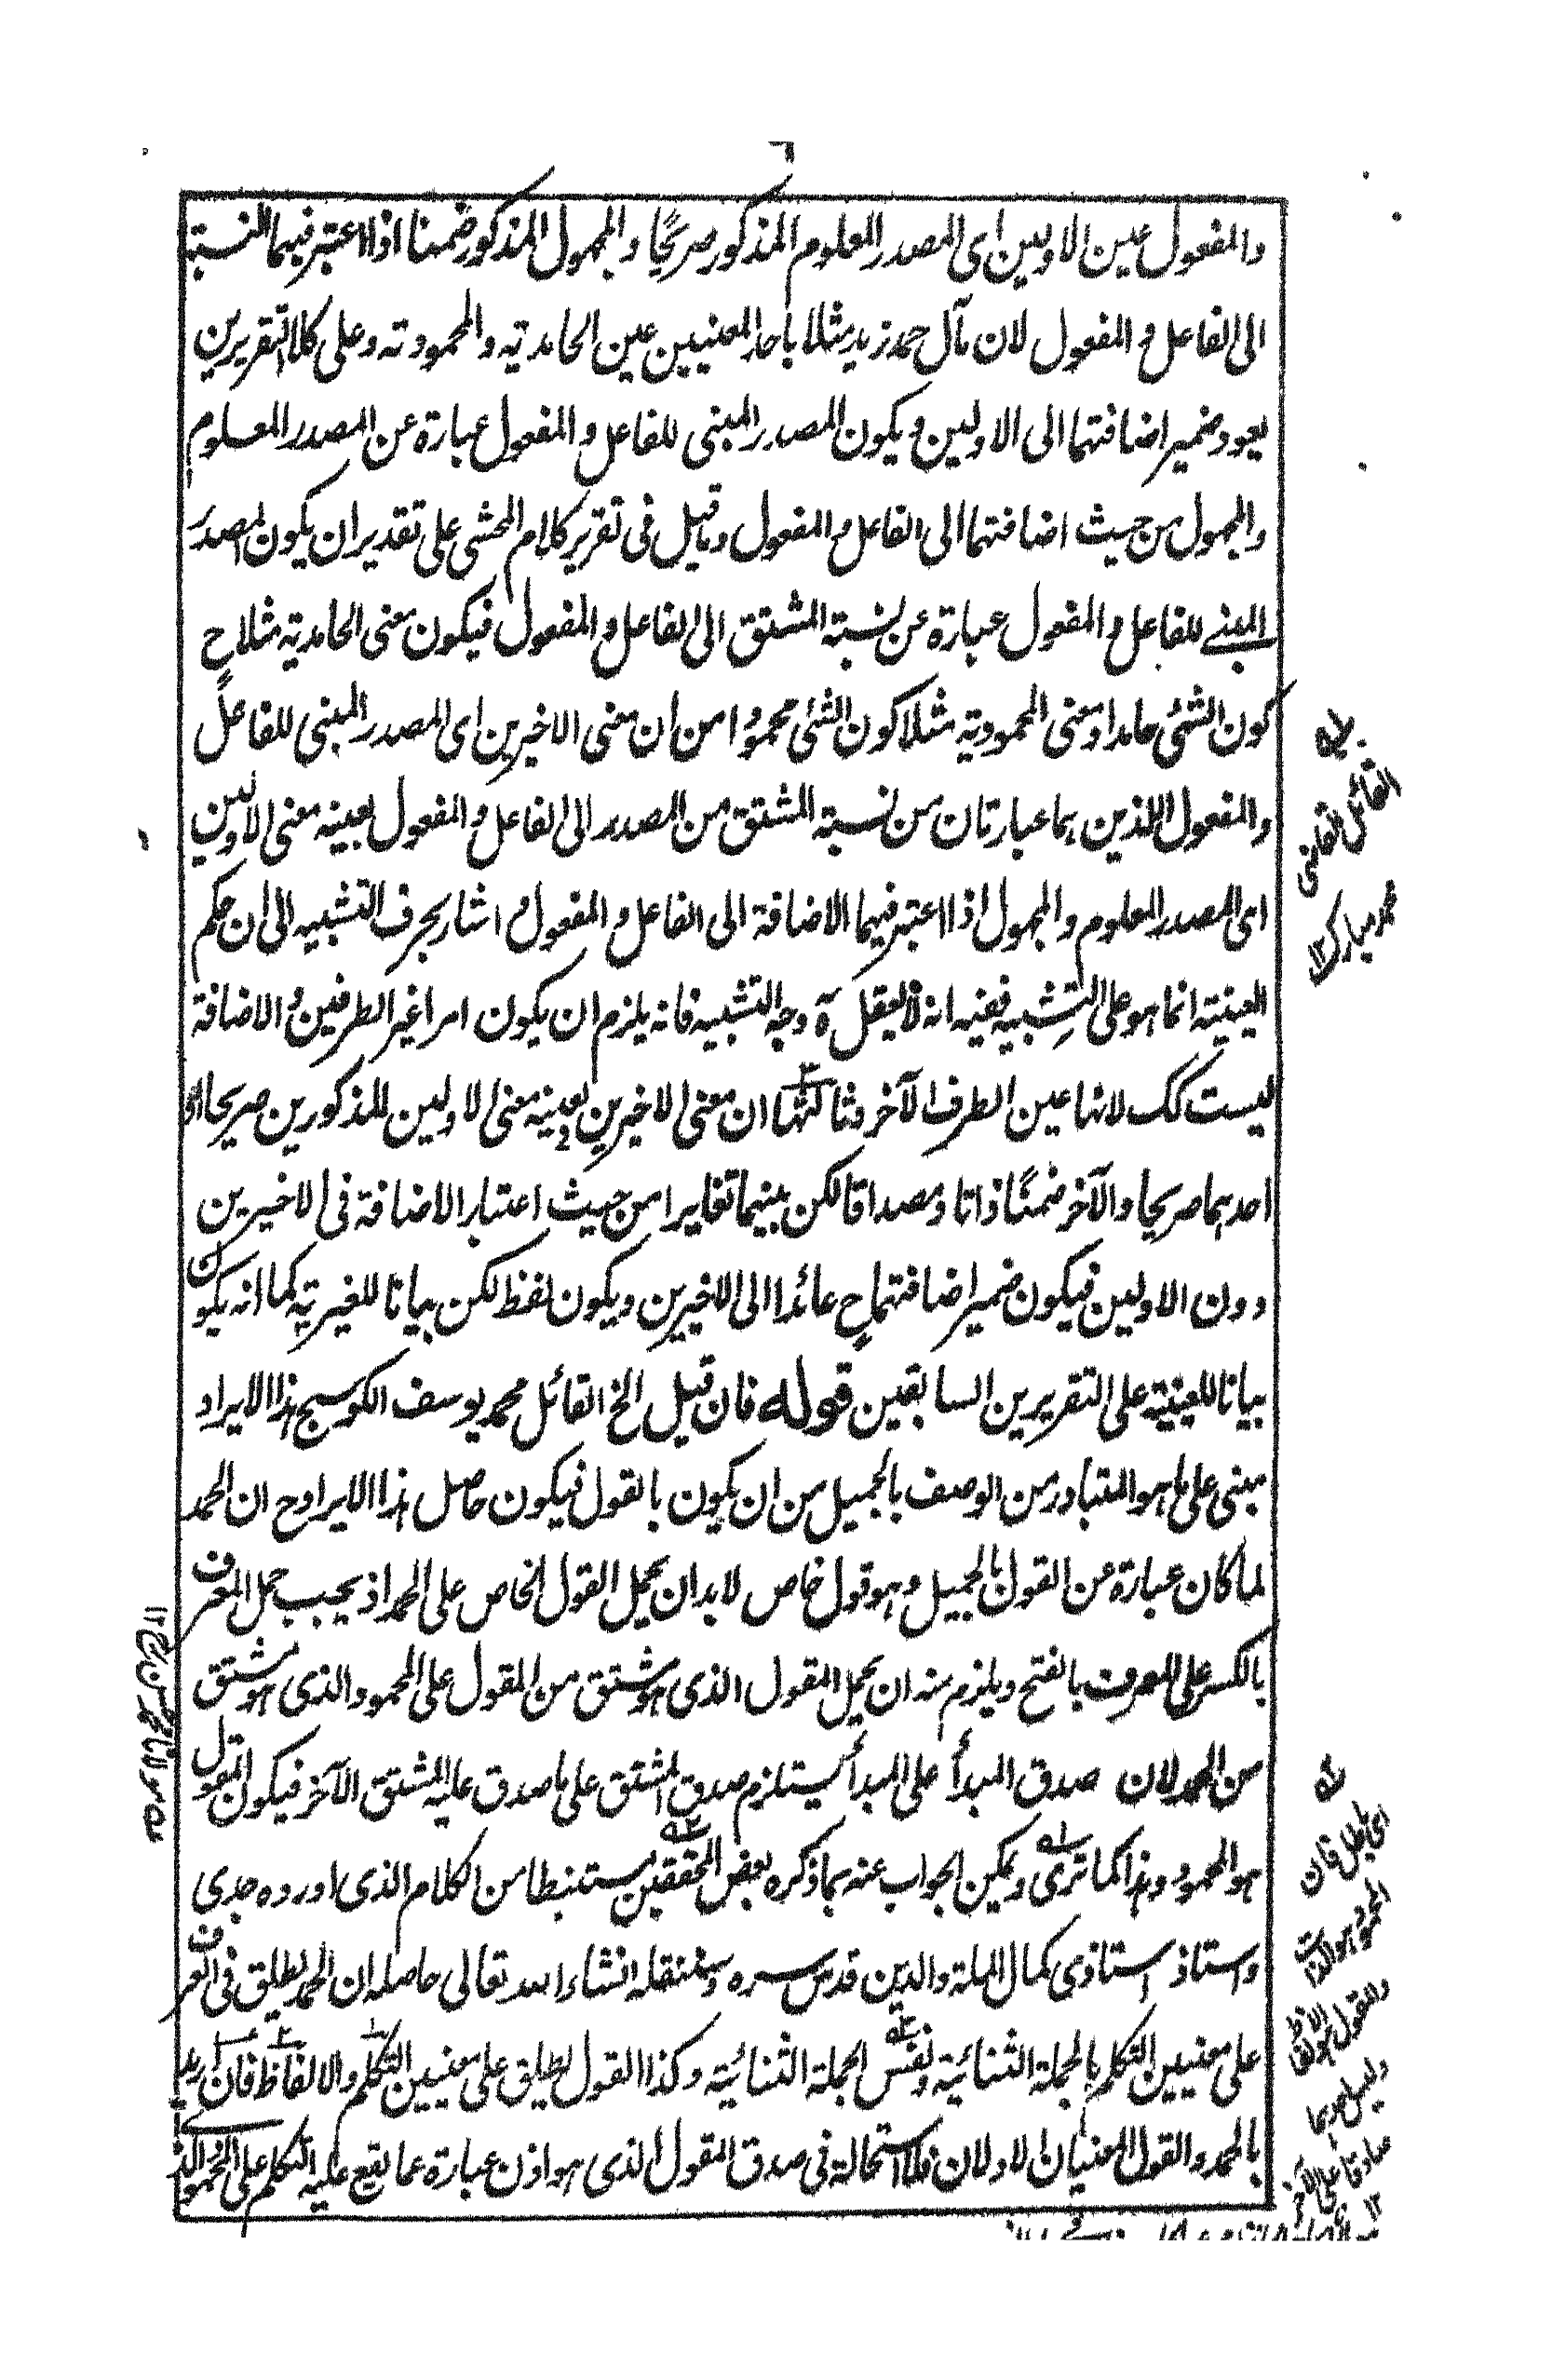 ٦
والمفعول عين الاولين اى المصدر المعلوم المذكور صريحًا والمجهول المذكور ضمنا اذا اعتبر فيهما النسبة
الى الفاعل والمفعول لان مآل حمد زيد مثلا باحد المعنيين عين الحامدية والمحمودية وعلى كلا التقريرين
يعود ضمير اضافتهما الى الاولين ويكون المصدر المبنى للفاعل والمفعول عبارة عن المصدر المعلوم
والمجهول من حيث اضافتهما الى الفاعل والمفعول وما قيل فى تقرير كلام المحشى على تقدير ان يكون المصدر
المبنے للفاعل والمفعول عبارة عن نسبة المشتق الى الفاعل والمفعول فيكون معنى الحامدية مثلا ح
كون الشئ حامدا ومعنى المحمودية مثلا كون الشئ محمودا من ان معنى الاخيرين اى المصدر المبنى للفاعل
والمفعول اللذين هما عبارتان من نسبة المشتق من المصدر الى الفاعل والمفعول بعينه معنى الاولين
اى المصدر المعلوم والمجهول اذا اعتبر فيهما الاضافة الى الفاعل والمفعول واشار بحرف التشبيه الى ان حكم
العينية انما هو على التشبيه ففيه انه لا يعقل ة وجه التشبيه فانه يلزم ان يكون امرا غير الطرفين والاضافة
ليست كك لانها عين الطرف الآخر وثالثها ان معنى الاخيرين بعينه معنى الاولين المذكورين صريحا او
احدهما صريحا والآخر ضمنًا ذاتا ومصداقا لكن بينهما تغايرا من حيث اعتبار الاضافة فى الاخيرين
دون الاولين فيكون ضمير اضافتهما ح عائدا الى الاخيرين ويكون لفظ لكن بيانا للغيرية كما انه يكون
بيانا للعينية على التقريرين السابقين قوله فان قيل الخ القائل محمد يوسف الكوسج هذا الايراد
مبنى على ما هو المتبادر من الوصف بالجميل من ان يكون بالقول فيكون حاصل هذا الايراد ح ان الحمد
لما كان عبارة عن القول بالجميل وهو قول خاص لا بد ان يحمل القول الخاص على الحمد اذ يجب حمل المعرف
بالكسر على المعرف بالفتح ويلزم منه ان يحمل المقول الذى هو مشتق من القول على المحمود الذى هو مشتق
من الحمد لان صدق المبدأ على المبدأ يستلزم صدق المشتق على ما صدق عليه المشتق الآخر فيكون المقول
هو المحمود وهذا كما ترى ويمكن الجواب عنه بما ذكره بعض المحققين مستنبطا من الكلام الذى اورده جدى
واستاذ استاذى كمال الملة والدين قدس سره وسننقله انشاء الله تعالى حاصله ان الحمد يطلق فى العرف
على معنيين التكلم بالجملة الثنائية ونفس الجملة الثنائية وكذا القول يطلق على معنيين التكلم والالفاظ فان اريد
بالحمد والقول المعنيان الاولان فلا استحالة فى صدق المقول الذى هو اذن عبارة عما يقع عليه التكلم على المحمود الذ
القائل القاضى
محمد مبارك ١٢
اى باطل فان
المحمود هو الذات
والمقول هو الالفاظ
وليس احدهما
صادقا على الآخر
١٢